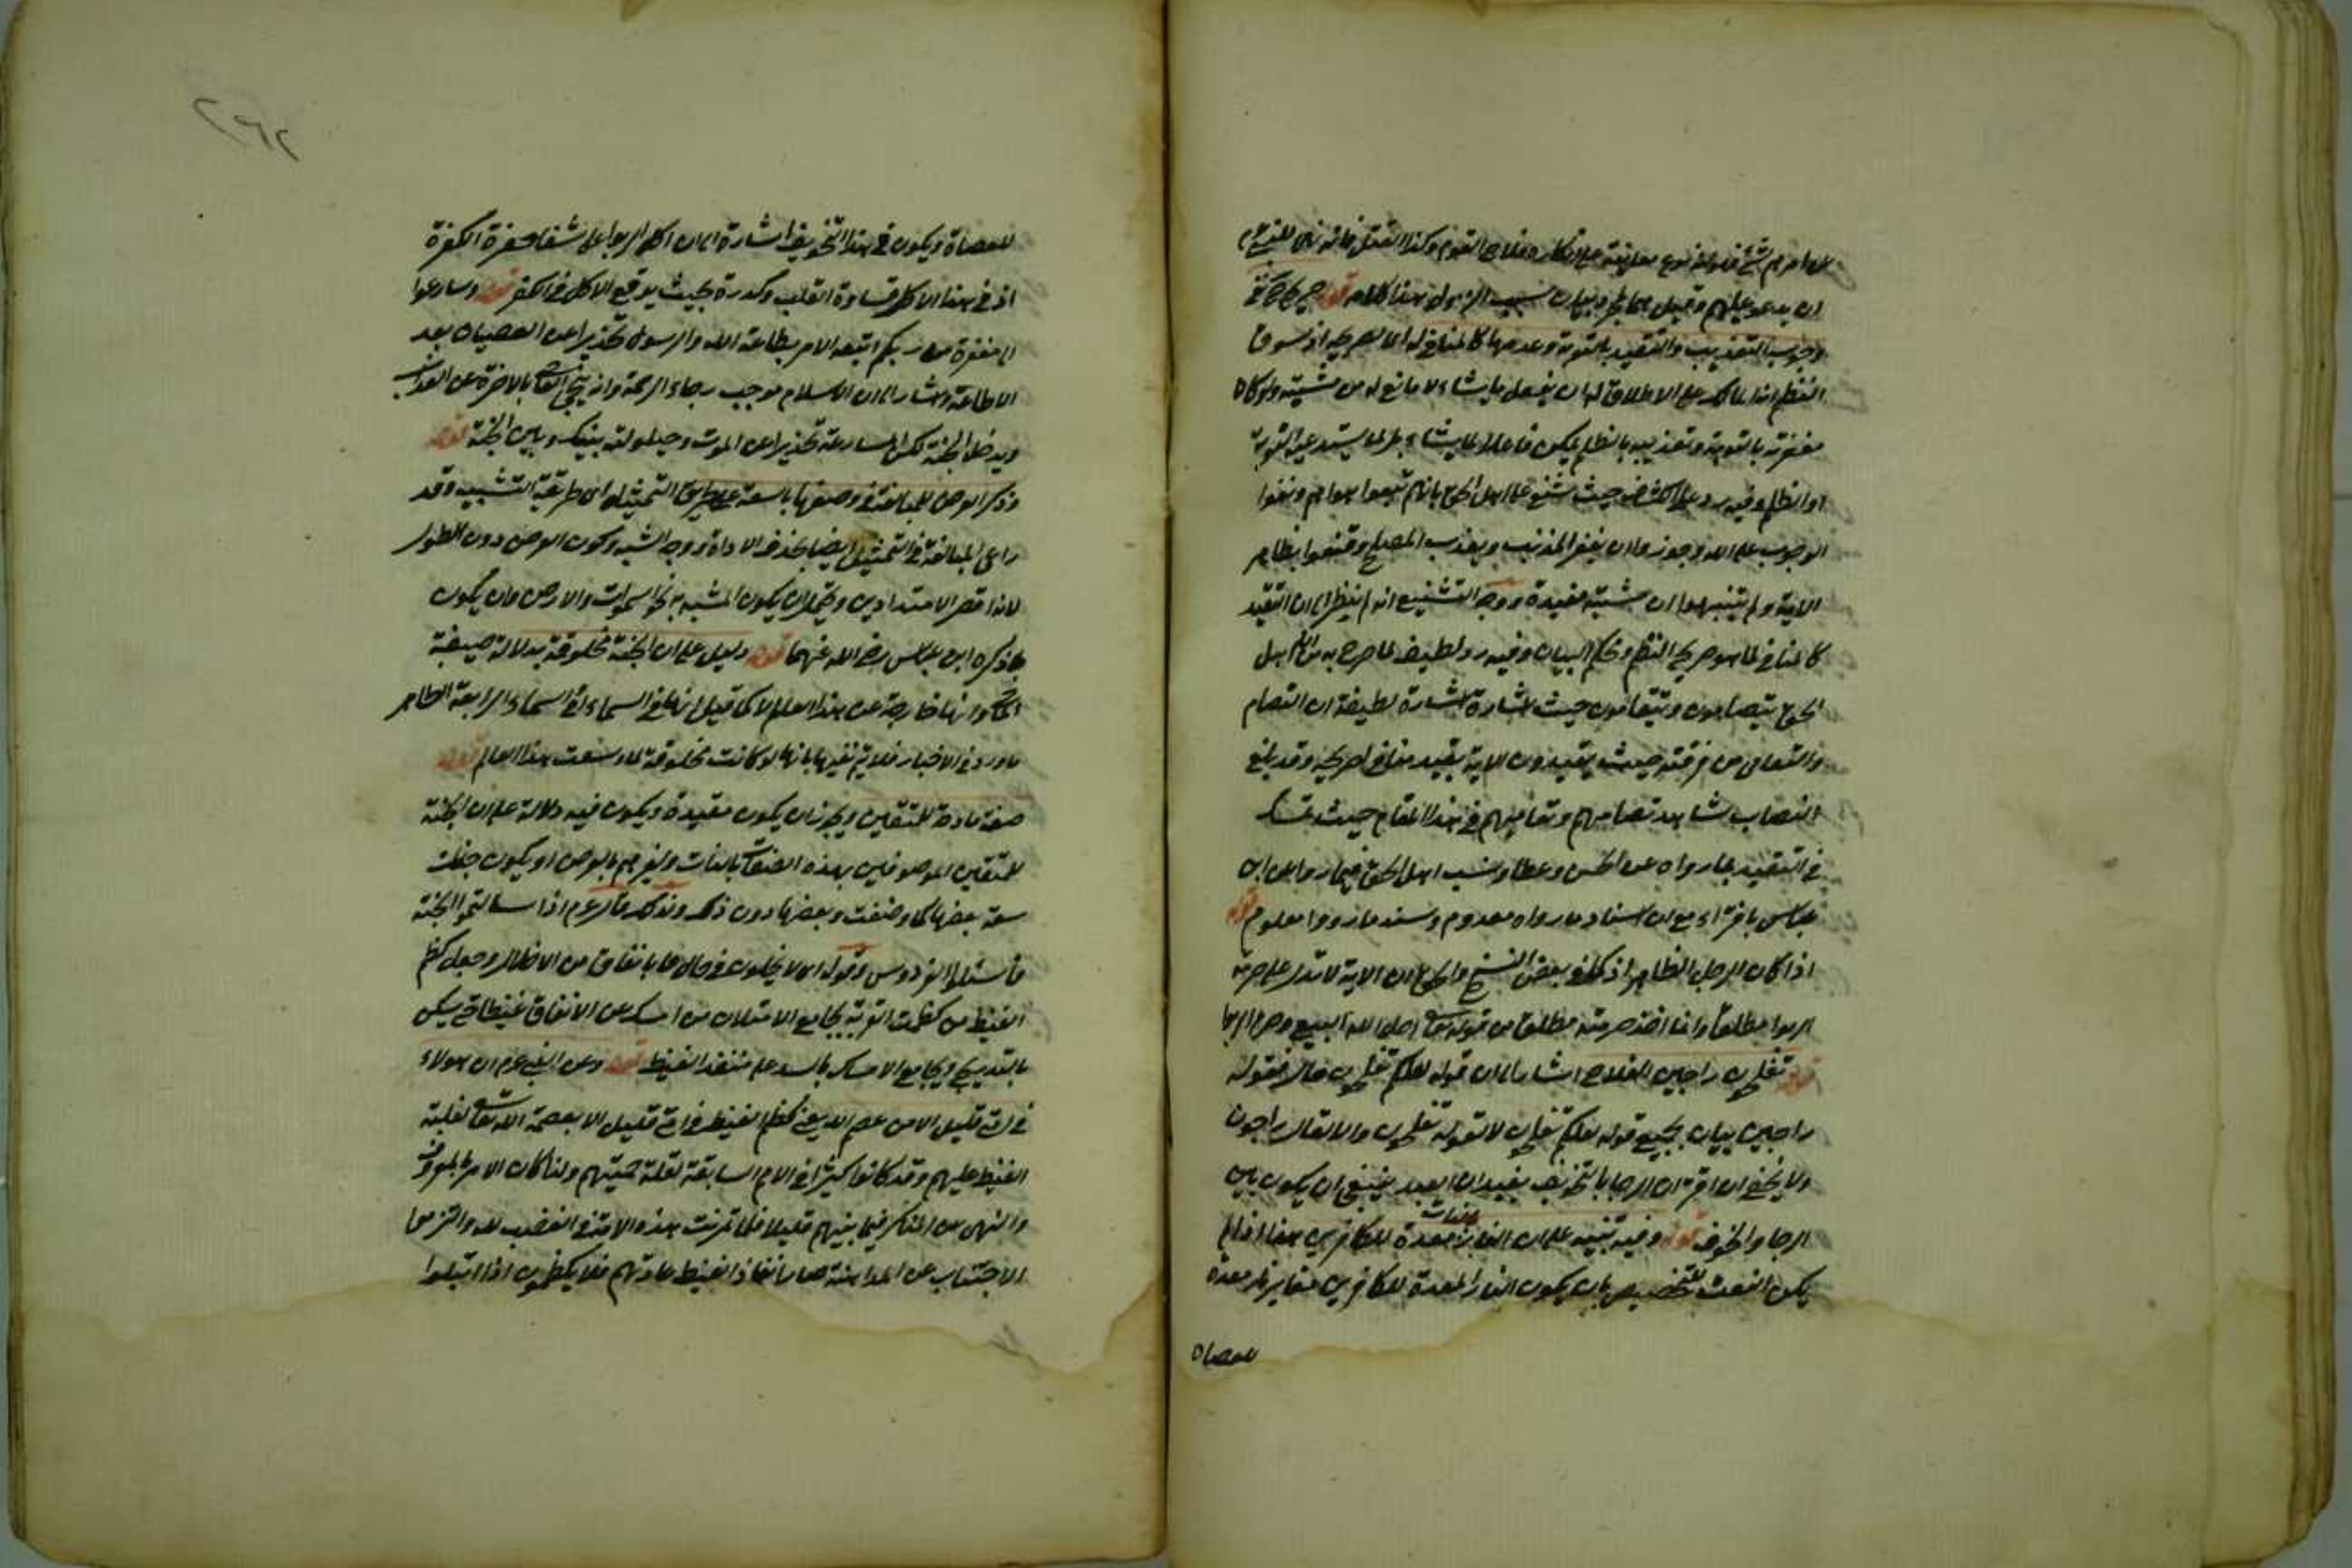 من امرهم شئ فلو انه نوع معاتبة على انكاره فلاح القوم وكذا القتل فانه نهى للنبي عم
ان يدعو عليهم وقيل بيان سبب النزول هذا كلام قوله صريح في نفي
وجوب التعذيب والتقييد بالتوبة وعدمها كالمنافي له اما صريحه اذ سوق
النظم انه المالك على الاطلاق له ان يفعل ما يشاء لا مانع له من مشيته ولو كان
مغفرته بالتوبة وتعذيبه بالظلم لم يكن فاعلا لما يشاء بل لما يستدعيه التوبة
او الظلم وفيه رد على الكشاف حيث شنع على اهل الحق بانهم تبعوا هواهم ونفوا
الوجوب على الله وجوزوا ان يغفر المذنب ويعذب المصلح وقنعوا بظاهر
الاية ولم يتنبهوا ان مشيته مقيدة ووجه التشنيع انه لم ينظر الى ان التقييد
كالمنافي لما هو صريح النظم ومحكم البيان وفيه رد لطيف لما صرح به من ان اهل
الحق يتصامون ويتعامون حيث اشار اشارة لطيفة ان التصام
والتعامى من فرقته حيث يقيدون الاية بقيد مناف لصريحه وقد بلغ
النصاب شاهد تصامهم وتعاميهم في هذا المقام حيث تمسك
في التقييد بما رواه عن الحسن وعطا ونسب اهل الحق فيما روا عن ابن
عباس بافتراء مع ان اسناد ما رواه معدوم وسند ما رووا معلوم قوله
اذا كان الرجل الظاهر اذ كما في بعض النسخ والحق ان الاية لا تدل على حرمة
الربوا مطلقا وانما اخذ حرمته مطلقا من قوله تعالى احل الله البيع وحرم الربوا
قوله تفلحون راجين الفلاح اشار الى ان قوله لعلكم تفلحون حال فقوله
راجين بيان لجميع قوله لعلكم تفلحون لا لقوله تفلحون والا لقال راجون
ولا يخفى ان اقتران الرجا بالتخويف يفيد ان العبد ينبغي ان يكون بين
الرجا والخوف قوله وفيه تنبيه على ان النار بالذات معدة للكافرين هذا اذا لم
يكن النعت للتخصيص بان يكون النار المعدة للكافرين مغايرة لنار معدة
للعصاة
للعصاة ويكون في هذا التخويف اشارة الى ان اكلة الربوا على شفا حفرة الكفرة
اذ في هذا الاكل قساوة القلب وكدرة بحيث يوقع الاكل في الكفر قوله وسارعوا
الى مغفرة من ربكم اتبعه الامر بطاعة الله والرسول تحذيرا عن العصيان بعد
الاطاعة واشار الى ان الاسلام موجب رجاء الرحمة وانه ينجي بالاخرة عن العذاب
ويدخل الجنة لكن المسارعة تحذيرا عن الموت وحيلولته بينك وبين الجنة قوله
وذكر العرض للمبالغة في وصفها بالسعة على طريق التمثيل اى طريقة التشبيه وقد
راعى المبالغة في التمثيل ايضا بحذف الاداة ووجه الشبه وكون العرض دون الطول
لانه اقصر الامتدادين ويحتمل ان يكون المشبه به نحو السموات والارض وان يكون
ما ذكره ابن عباس رضى الله عنهما قوله دليل على ان الجنة مخلوقة بدلالة صيغة
الماضي وانها خارجة عن هذا العالم لا كما قيل انها في السماء او في السماء الرابعة الظاهر
ما ورد في الاخبار فلا يتم نفيها بانها لو كانت مخلوقة لما وسعت هذا العالم قوله
صفة مادحة للمتقين ويجوز ان يكون مقيدة ويكون فيه دلالة على ان الجنة
للمتقين الموصوفين بهذه الصفات بالذات ولغيرهم بالعرض او يكون جنات
سعة بعضها كما وصفت وبعضها دون ذلك ولذلك قال عم اذا سالتموا الجنة
فاسئلوا الفردوس وقوله اى لا يخلون في حال ما بانفاق من الاخلال وجعل كظم
الغيظ من كظمت القربة بجامع الامتلاء من امسك عن الانفاق غيظا حتى يسكن
بالتدريج وبجامع الامساك بالسد على منفذ الغيظ قوله وعن النبي عم ان هولاء
في امتي قليل الا من عصم الله يعنى كظم الغيظ في امتي قليل الا بعصمة الله تعالى لغلبة
الغيظ عليهم وقد كانوا كثيرا في الامم السابقة لقلة حميتهم ولذا كان الامر بالمعروف
والنهى عن المنكر فيما بينهم قليلا فلما تمرنت هذه الامة في الغضب لله والتزموا
الاجتناب عن المداهنة صار انفاذ الغيظ عادتهم فلا يكظمون اذا ابتلوا